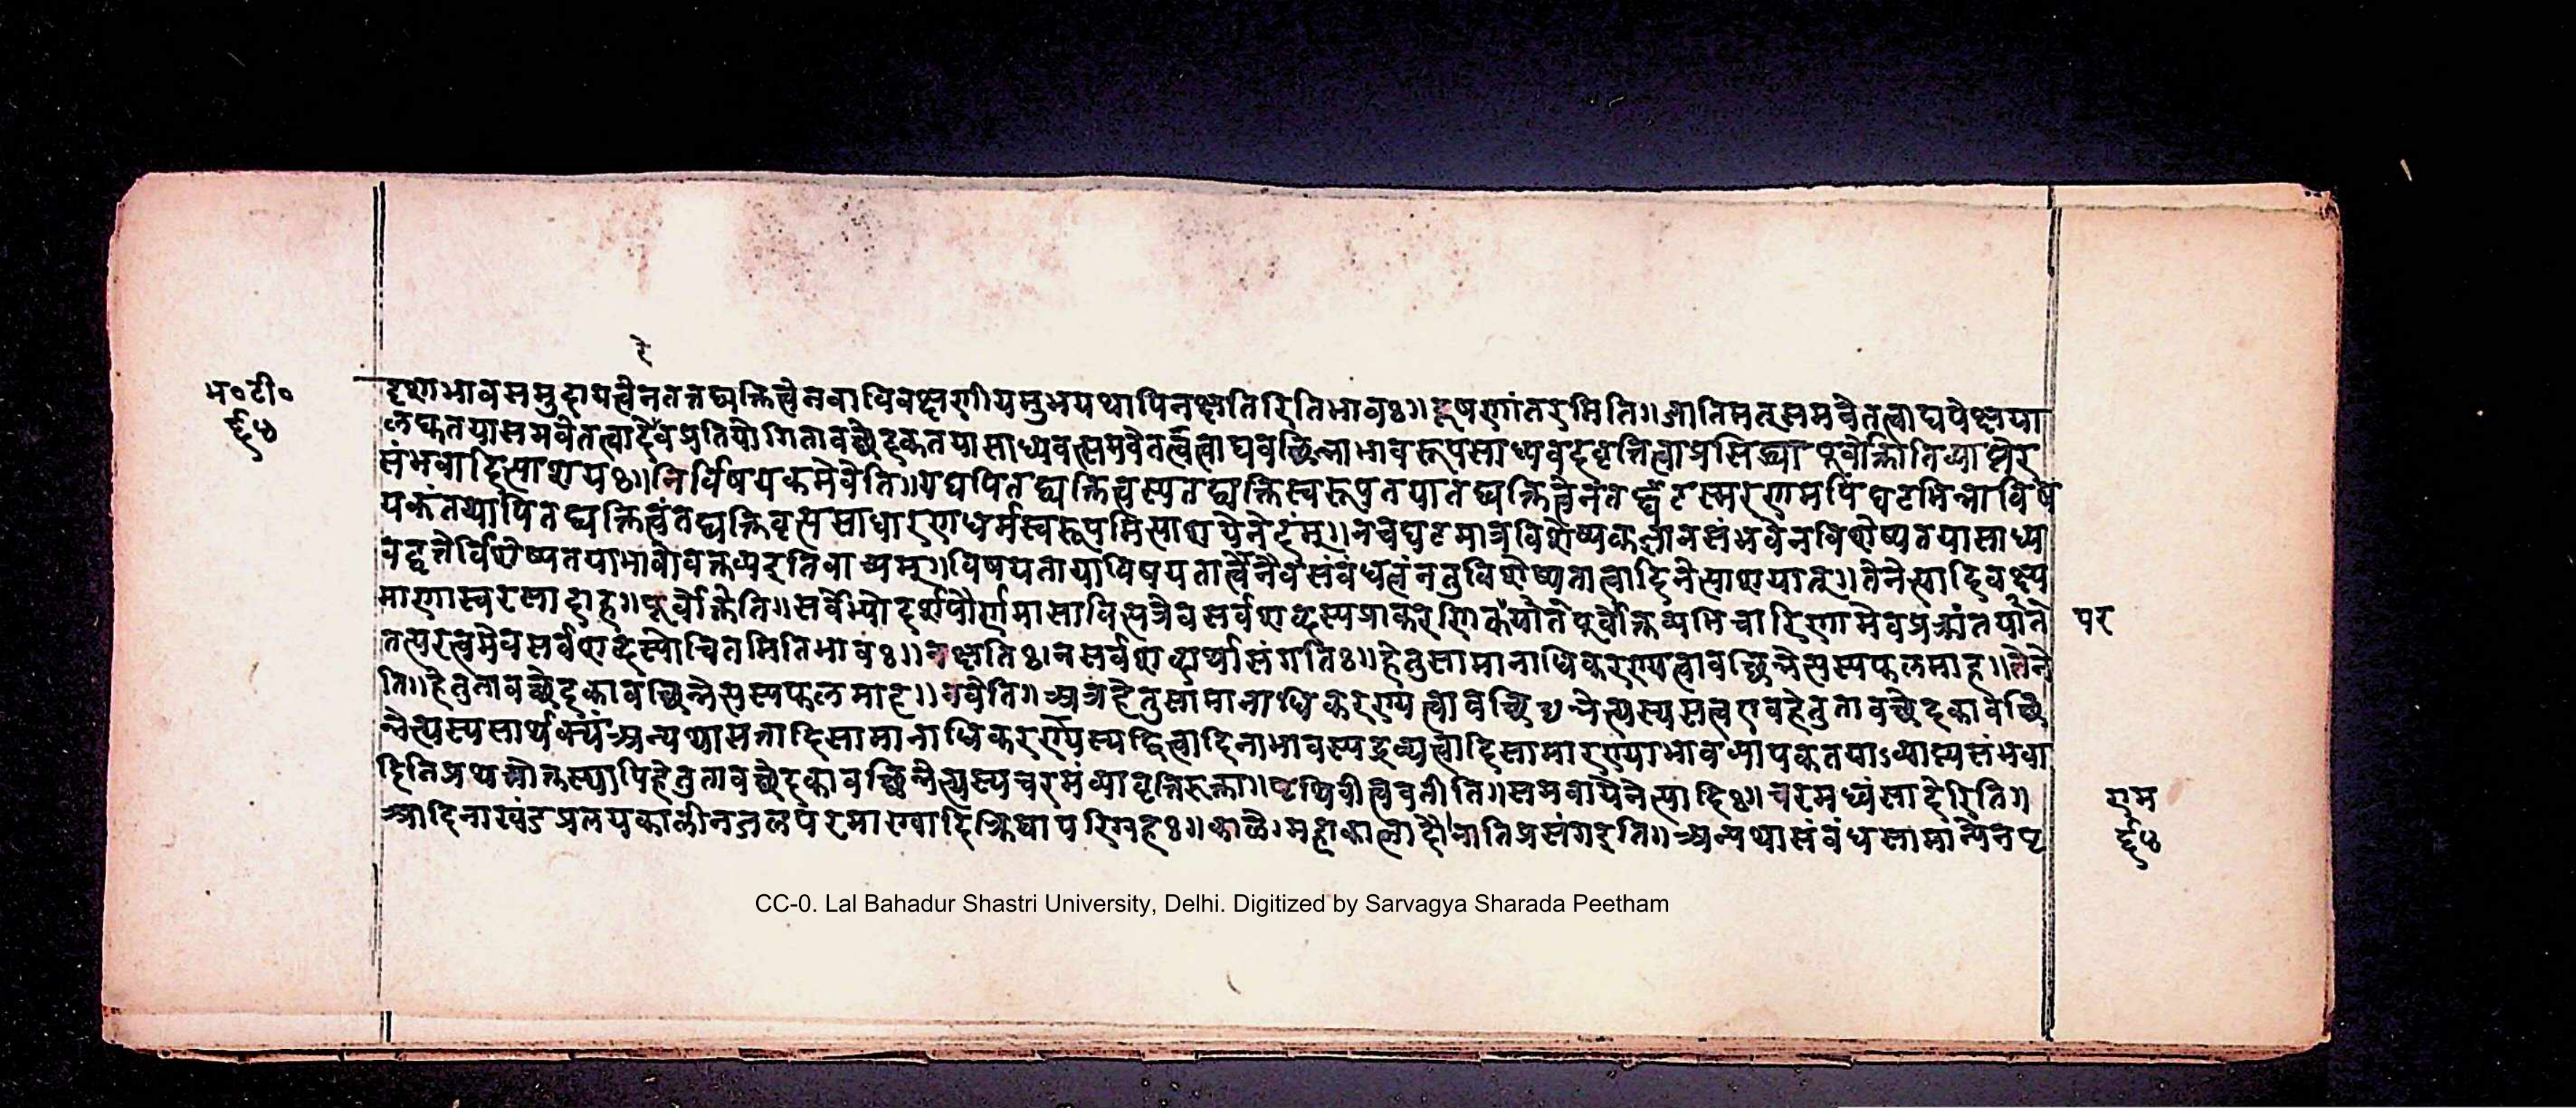 रे
भ०टी०
६५
दृशाभावसमुदायत्वेनतत्तद्व्यक्तित्वेनवाविवक्षणीयमुभयथापिनक्षतिरितिभावः॥दूषणांतरमिति॥जातिमत्समवेतत्वाद्यपेक्षया
समवेतत्वादेवप्रतियोगितावच्छेदकतयासाध्यवत्समवेतत्वाद्यवच्छिन्नाभावरूपसाध्यवदवृत्तित्वाप्रसिद्ध्यापूर्वोक्तातिव्याप्तेर
संभवादित्याशयः॥निर्विषयकमेवेति॥यद्यपितद्व्यक्तित्वस्यतद्व्यक्तिस्वरूपतयातद्व्यक्तित्वेन घटस्मरणमपिघटभिन्नाविष
यकंतथापितद्व्यक्तित्वंतद्व्यक्तिवृत्त्यसाधारणधर्मस्वरूपमित्याशयेनेदम्॥नचघटमात्रविशेष्यकज्ञानसंभवेनविशेष्यतयासाध्य
वद्वृत्तेर्विशेष्यतयाभावोवक्तव्यइतिवाच्यम्॥विषयतायाविषयतात्वेनैवसंबंधत्वंनतुविशेष्यतात्वादिनेत्याशयात्॥तेनेत्यादिवक्ष्य
माणास्वरसादाह॥पूर्वोक्तेति॥सर्वेभ्योदर्शपौर्णमासावित्यत्रैवसर्वशब्दस्य पूर्वोक्तव्यभिचारिणामेव
पर
तत्परत्वमेवसर्वशब्दस्योचितमितिभावः॥नक्षतिः।नसर्वशब्दार्थासंगतिः॥हेतुसामानाधिकरण्यत्वावच्छिन्नेत्यस्यफलमाह॥तेने
ति॥हेतुतावच्छेदकावच्छिन्नेत्यस्यफलमाह॥नवेति॥अत्रहेतुसामानाधिकरण्यत्वावच्छि न्नेत्यस्यसत्वएवहेतुतावच्छेदकावच्छि
न्नेत्यस्यसार्थक्यंअन्यथासत्तादिसामानाधिकरण्यस्यद्वित्वादिनाभावस्यद्रव्यत्वादिसामारण्याभावव्यापकतयाऽव्याप्त्यसंभवा
दितिप्रथमोक्तस्यापिहेतुतावच्छेदकावच्छिन्नेत्यस्यचरमंव्यावृत्तिरुक्ता॥पृथिवीत्वेवतीति॥समवायेनेत्यादिः॥चरमध्वंसादेरिति॥
आदिनाखंडप्रलयकालीनजलपरमाण्वादिक्रियापरिग्रहः॥काले।महाकालादौ।नातिप्रसंगइति॥अन्यथासंबंधसामान्येनघ
राम
६५
CC-0. Lal Bahadur Shastri University, Delhi. Digitized by Sarvagya Sharada Peetham